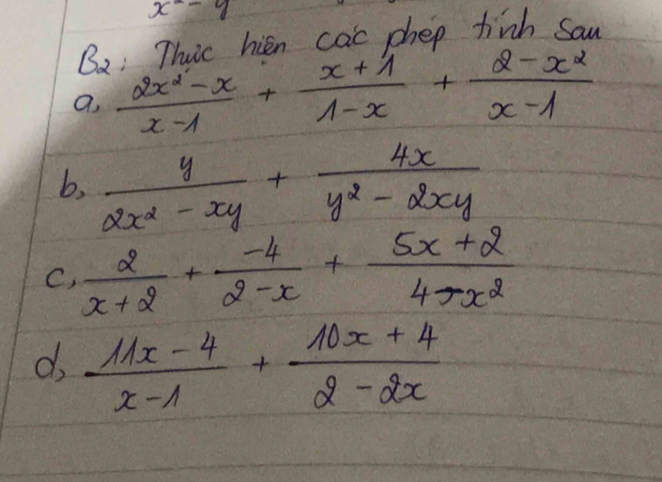 x² - y
B2: Thực hiện các phép tính sau
a, (2x² - x)/(x - 1) + (x + 1)/(1 - x) + (2 - x²)/(x - 1)
b, y/(2x² - xy) + 4x/(y² - 2xy)
c, 2/(x + 2) + -4/(2 - x) + (5x + 2)/(4 - x²)
d, (11x - 4)/(x - 1) + (10x + 4)/(2 - 2x)